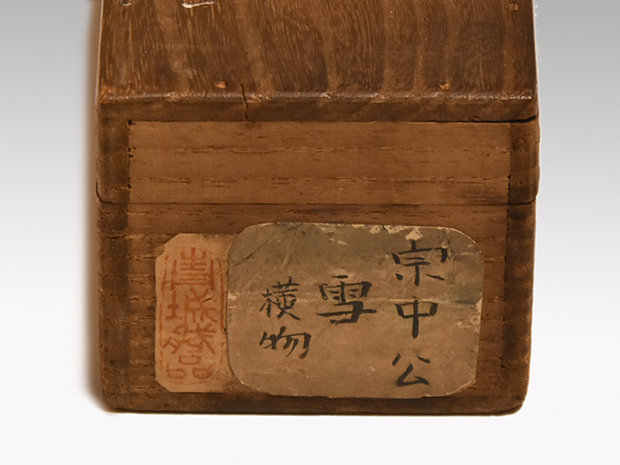 宗中公
雪
横物